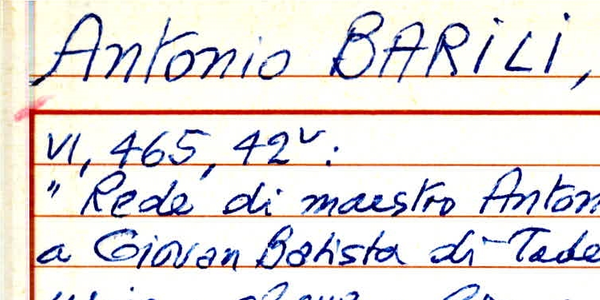 Antonio BARILI,
VI, 465, 42v:
" Rede di maestro Anton
a Giovan Batista di Tade